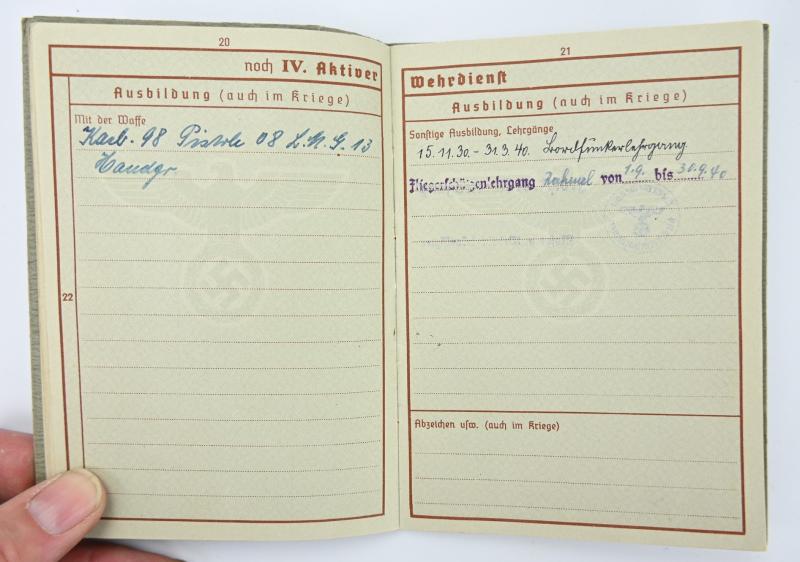 20
noch IV. Aktiver
Ausbildung (auch im Kriege)
22
Mit der Waffe
Karb. 98 Pistole 08 L.M.G. 13
Handgr.
21
Wehrdienst
Ausbildung (auch im Kriege)
Sonstige Ausbildung, Lehrgänge
15.11.30. - 31.3.40. Bordfunkerlehrgang
Fliegerschützenlehrgang von 1.9. bis 30.9.40
Abzeichen usw. (auch im Kriege)